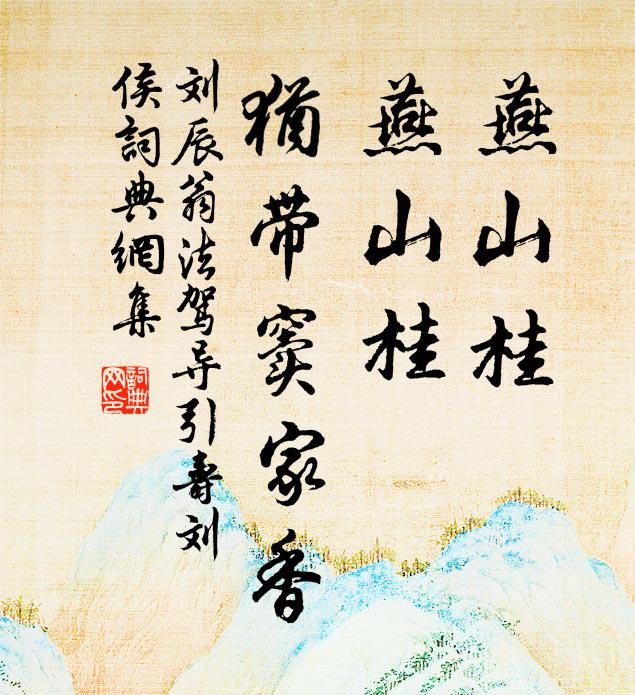 燕山桂
燕山桂
猶带窦家香
刘辰翁法驾导引壽刘
侯詞典網集
詞典
网印